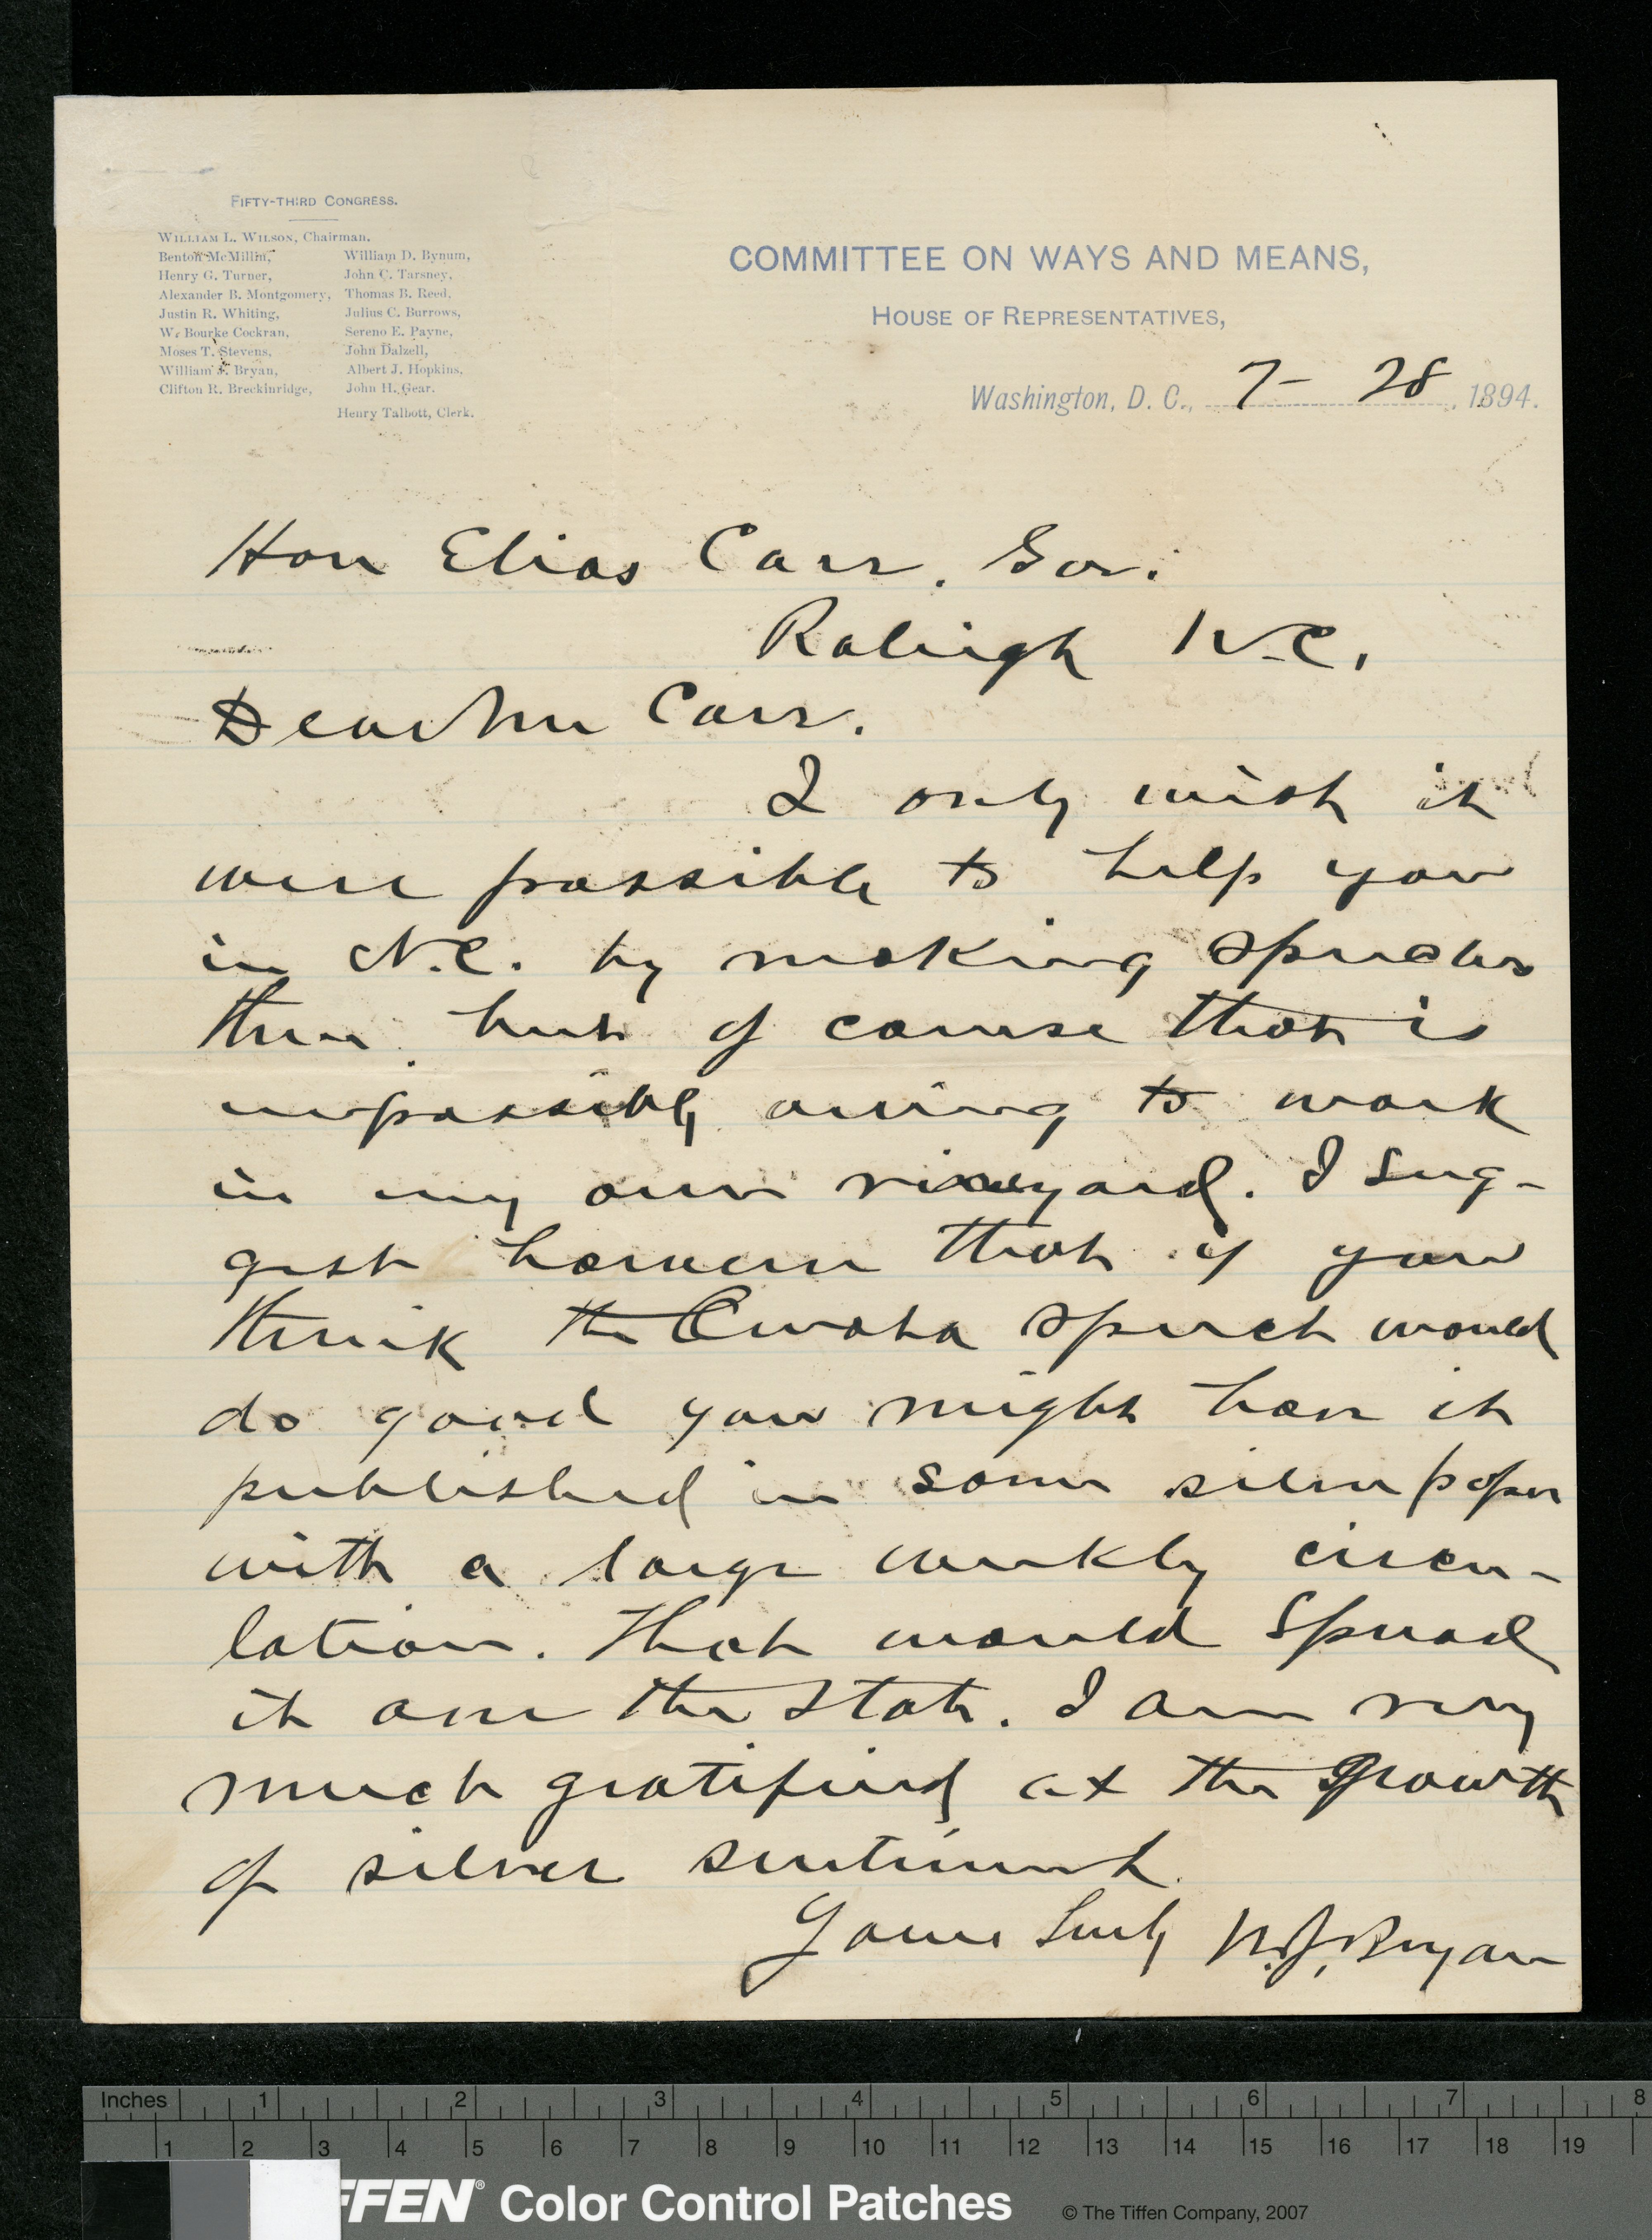 FIFTY-THIRD CONGRESS.
WILLIAM L. WILSON, Chairman.
Benton McMillin, William D. Bynum,
Henry G. Turner, John C. Tarsney,
Alexander B. Montgomery, Thomas B. Reed,
Justin R. Whiting, Julius C. Burrows,
W. Bourke Cockran, Sereno E. Payne,
Moses T. Stevens, John Dalzell,
William J. Bryan, Albert J. Hopkins,
Clifton R. Breckinridge, John H. Gear.
Henry Talbott, Clerk.
COMMITTEE ON WAYS AND MEANS,
HOUSE OF REPRESENTATIVES,
Washington, D. C., 7 - 28, 1894.
Hon Elias Carr. Gov.
Raleigh N.C.
Dear Mr Carr.
I only wish it
were possible to help you
in N.C. by making speeches
there but of course that is
impossible owing to work
in my own vineyard. I sug-
gest however that if you
think the Omaha speech would
do good you might have it
published in some silver paper
with a large weekly circu-
lation. That would spread
it over the State. I am very
much gratified at the growth
of silver sentiment.
Yours truly W.J. Bryan
Inches 1 2 3 4 5 6 7 8
1 2 3 4 5 6 7 8 9 10 11 12 13 14 15 16 17 18 19
FFEN® Color Control Patches © The Tiffen Company, 2007